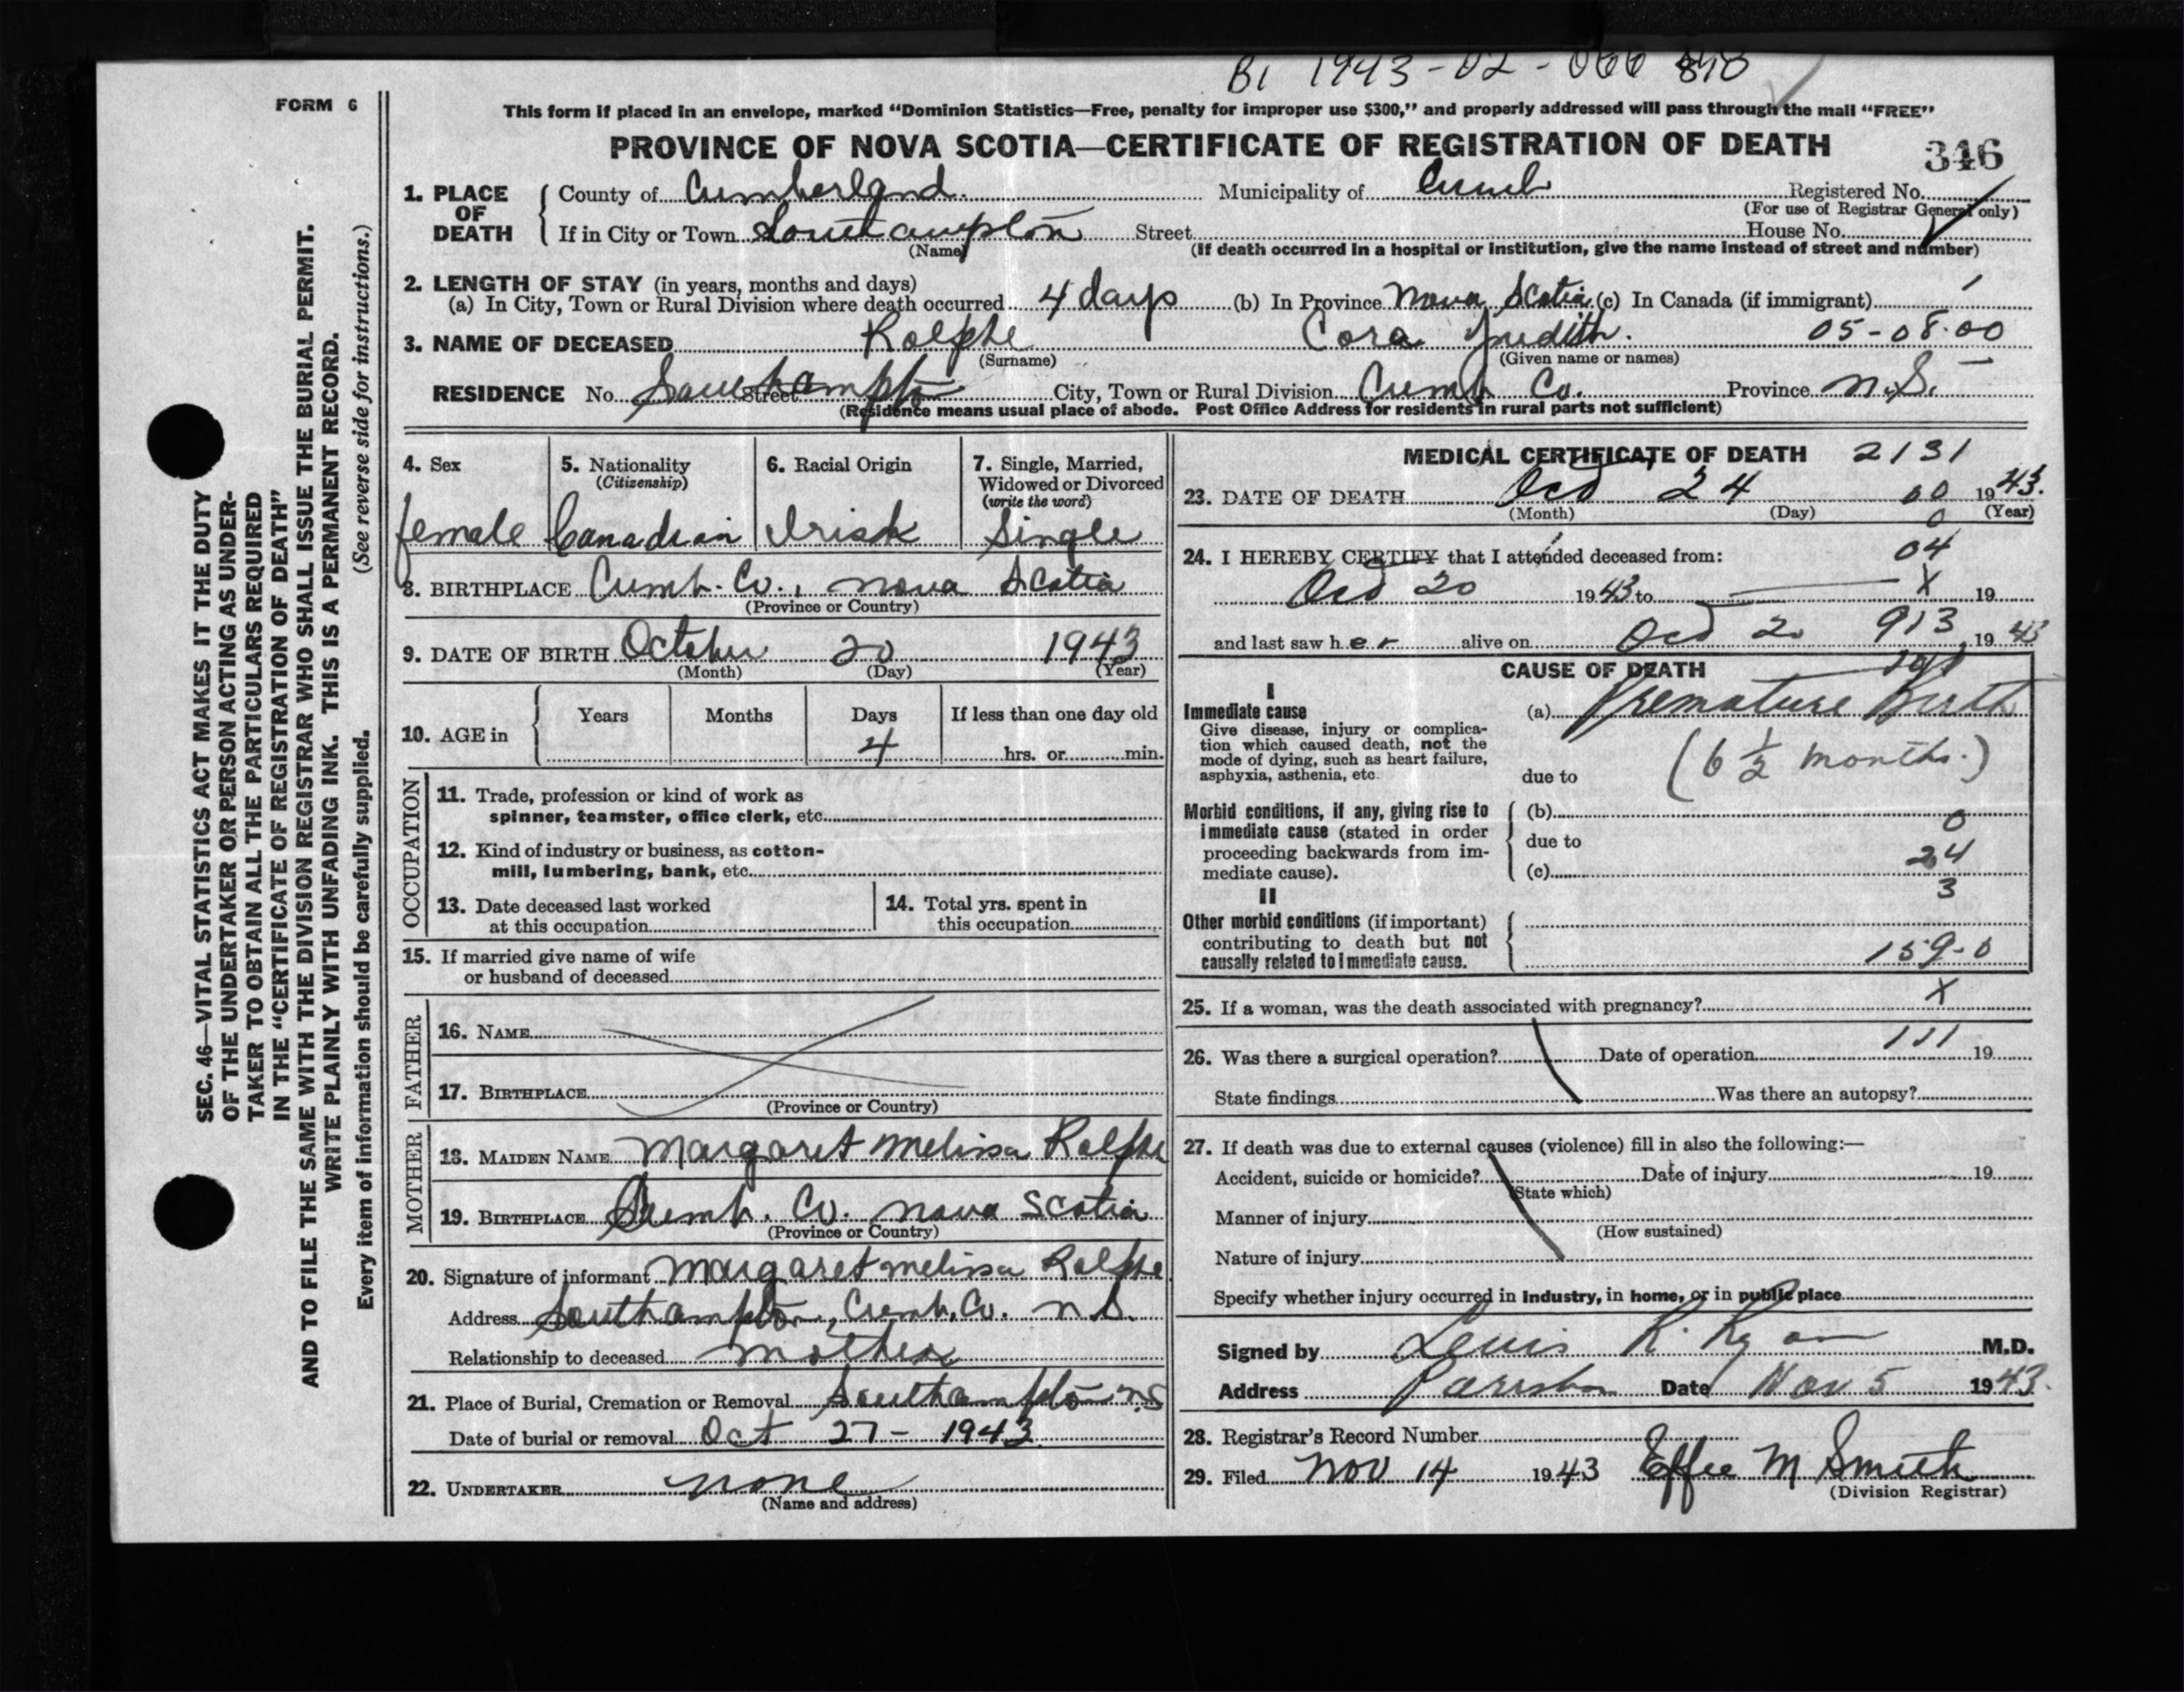 B1 1943-02-066 890
FORM 6
This form if placed in an envelope, marked “Dominion Statistics—Free, penalty for improper use $300,” and properly addressed will pass through the mail “FREE”
PROVINCE OF NOVA SCOTIA—CERTIFICATE OF REGISTRATION OF DEATH
346
1. PLACE OF DEATH County of Cumberland. Municipality of Cumb Registered No.
(For use of Registrar General only)
If in City or Town Southampton Street House No.
(Name) (If death occurred in a hospital or institution, give the name instead of street and number)
2. LENGTH OF STAY (in years, months and days)
(a) In City, Town or Rural Division where death occurred 4 days (b) In Province Nova Scotia (c) In Canada (if immigrant)
3. NAME OF DECEASED Rolphe Cora Judith. 05-08-00
(Surname) (Given name or names)
RESIDENCE No. Southampton Street City, Town or Rural Division Cumb. Co. Province N.S.
(Residence means usual place of abode. Post Office Address for residents in rural parts not sufficient)
SEC. 46—VITAL STATISTICS ACT MAKES IT THE DUTY
OF THE UNDERTAKER OR PERSON ACTING AS UNDER-
TAKER TO OBTAIN ALL THE PARTICULARS REQUIRED
IN THE “CERTIFICATE OF REGISTRATION OF DEATH”
AND TO FILE THE SAME WITH THE DIVISION REGISTRAR WHO SHALL ISSUE THE BURIAL PERMIT.
WRITE PLAINLY WITH UNFADING INK. THIS IS A PERMANENT RECORD.
Every item of information should be carefully supplied. (See reverse side for instructions.)
4. Sex 5. Nationality 6. Racial Origin 7. Single, Married,
(Citizenship) Widowed or Divorced
(write the word)
female Canadian Irish Single
8. BIRTHPLACE Cumb. Co., Nova Scotia
(Province or Country)
9. DATE OF BIRTH October 20 1943
(Month) (Day) (Year)
10. AGE in Years Months Days If less than one day old
4 hrs. or min.
OCCUPATION
11. Trade, profession or kind of work as
spinner, teamster, office clerk, etc.
12. Kind of industry or business, as cotton-
mill, lumbering, bank, etc.
13. Date deceased last worked 14. Total yrs. spent in
at this occupation this occupation
15. If married give name of wife
or husband of deceased
FATHER
16. NAME
17. BIRTHPLACE
(Province or Country)
MOTHER
18. MAIDEN NAME Margaret Melissa Rolphe
19. BIRTHPLACE Cumb. Co. Nova Scotia
(Province or Country)
20. Signature of informant Margaret Melissa Rolphe
Address Southampton, Cumb. Co. N.S.
Relationship to deceased Mother
21. Place of Burial, Cremation or Removal Southampton N.S
Date of burial or removal Oct 27 - 1943
22. UNDERTAKER none
(Name and address)
MEDICAL CERTIFICATE OF DEATH 2131
23. DATE OF DEATH Oct 24 00 1943.
(Month) (Day) (Year)
0
24. I HEREBY CERTIFY that I attended deceased from: 04
Oct 20 1943 to X 19
and last saw her alive on Oct 20 913 1943
CAUSE OF DEATH
I
Immediate cause (a) Premature Birth
Give disease, injury or complica-
tion which caused death, not the
mode of dying, such as heart failure,
asphyxia, asthenia, etc. due to (6 ½ months.)
Morbid conditions, if any, giving rise to (b) 0
immediate cause (stated in order due to
proceeding backwards from im- 24
mediate cause). (c)
II 3
Other morbid conditions (if important)
contributing to death but not
causally related to immediate cause. 159-0
25. If a woman, was the death associated with pregnancy? X
26. Was there a surgical operation? Date of operation 111 19
State findings Was there an autopsy?
27. If death was due to external causes (violence) fill in also the following:—
Accident, suicide or homicide? Date of injury 19
(State which)
Manner of injury
(How sustained)
Nature of injury
Specify whether injury occurred in Industry, in home, or in public place
Signed by Lewis R. Ryan M.D.
Address Parrsboro Date Nov 5 1943.
28. Registrar's Record Number
29. Filed Nov 14 1943 Effie M Smith
(Division Registrar)